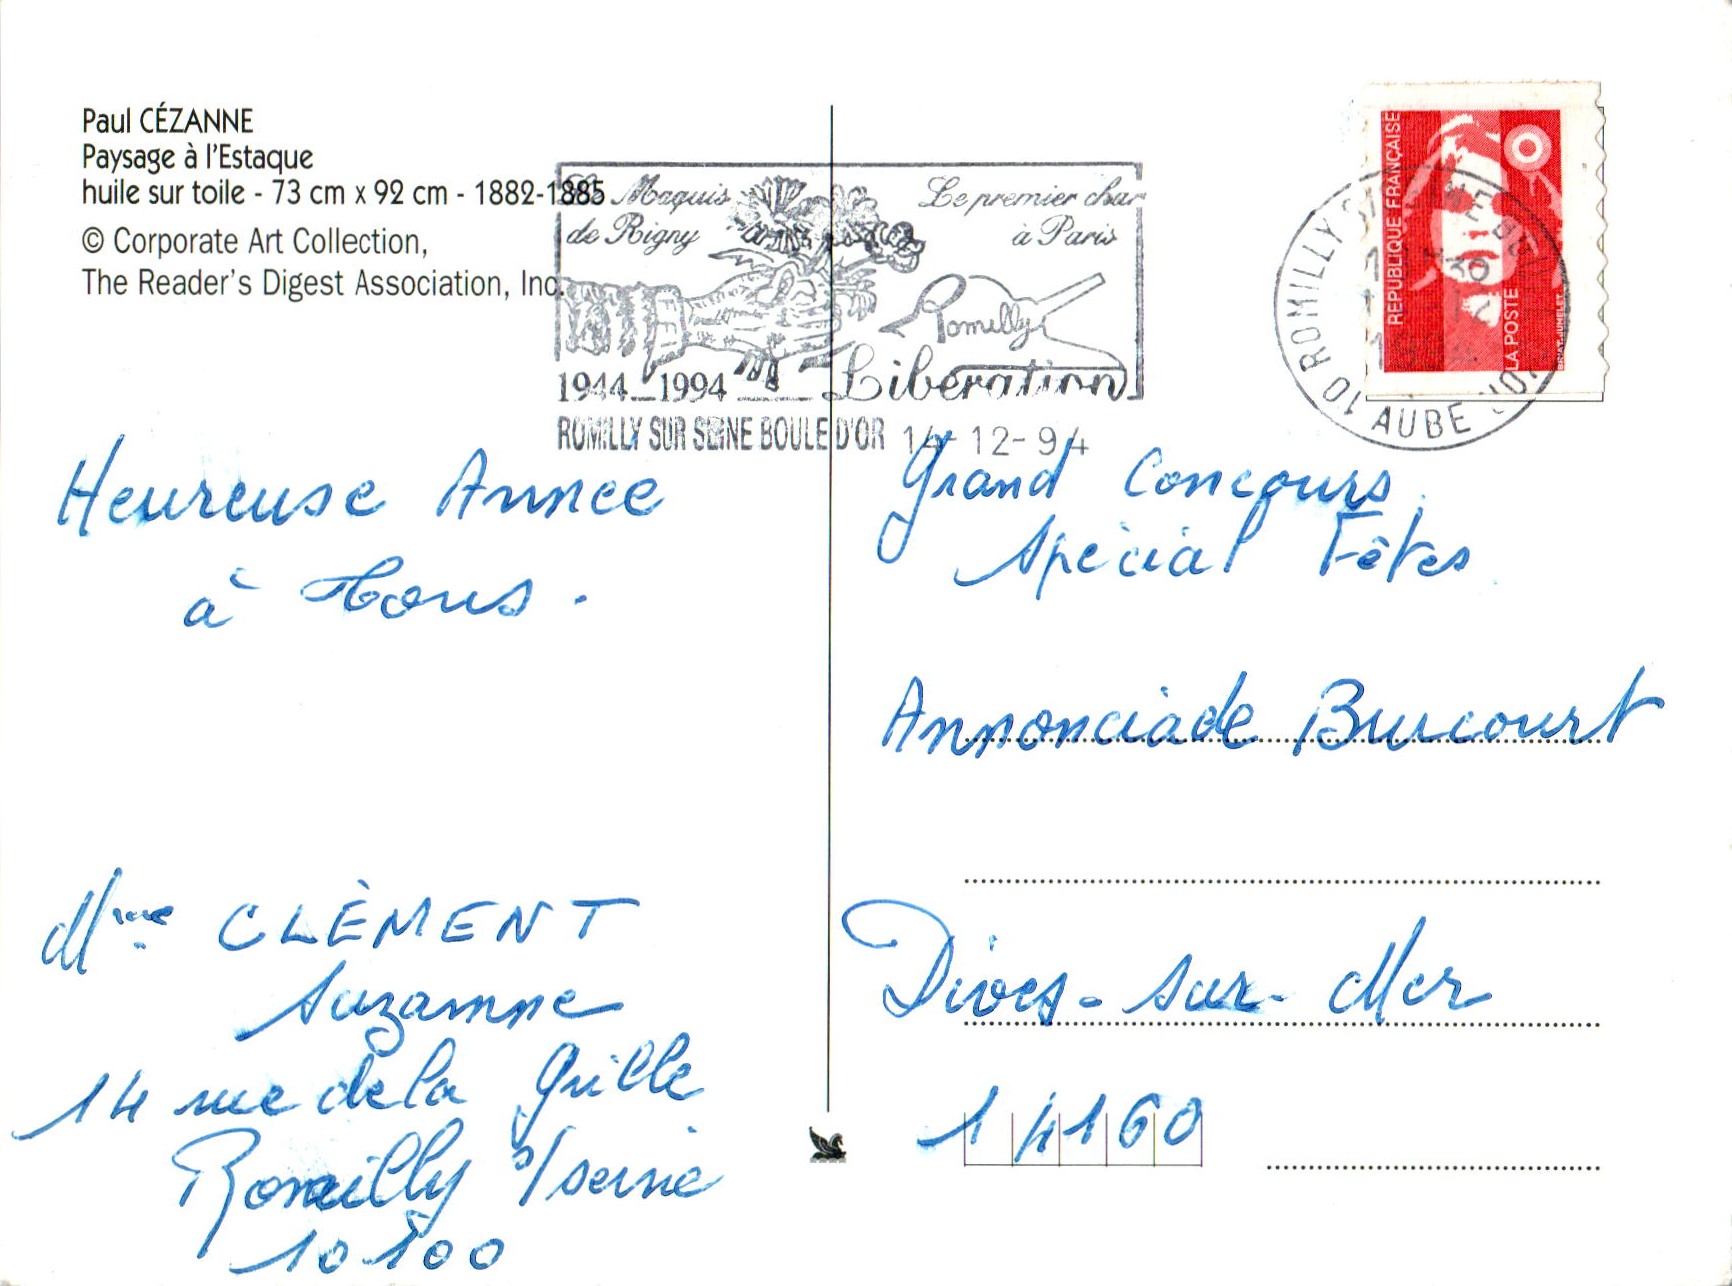 Paul CÉZANNE
Paysage à l'Estaque
huile sur toile - 73 cm x 92 cm - 1882-1885
© Corporate Art Collection,
The Reader's Digest Association, Inc.
Le Maquis
de Rigny
Le premier char
à Paris
Romilly
1944 1994
Libération
ROMILLY SUR SEINE BOULE D'OR 14-12-94
REPUBLIQUE FRANÇAISE
LA POSTE
10 ROMILLY
AUBE
Heureuse Annee
à Tous.
Mme CLÉMENT
Suzanne
14 rue de la Grille
Romilly s/seine
10100
Grand Concours
Spécial Fêtes
Annonciade Brucourt
Dives-sur-Mer
14160